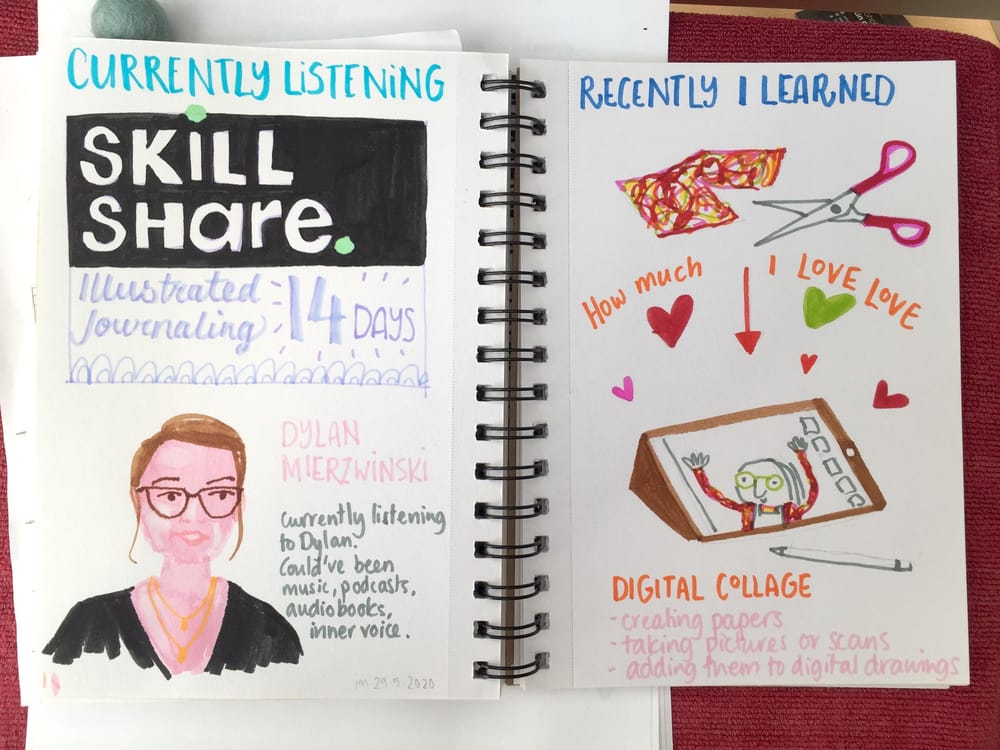 CURRENTLY LISTENING
SKILL
SHare.
Illustrated
Journaling
14 DAYS
DYLAN
MIERZWINSKI
currently listening
to Dylan.
Could've been
music, podcasts,
audiobooks,
inner voice.
29.9.2020
RECENTLY I LEARNED
How much
I LOVE LOVE
DIGITAL COLLAGE
- creating papers
- taking pictures or scans
- adding them to digital drawings